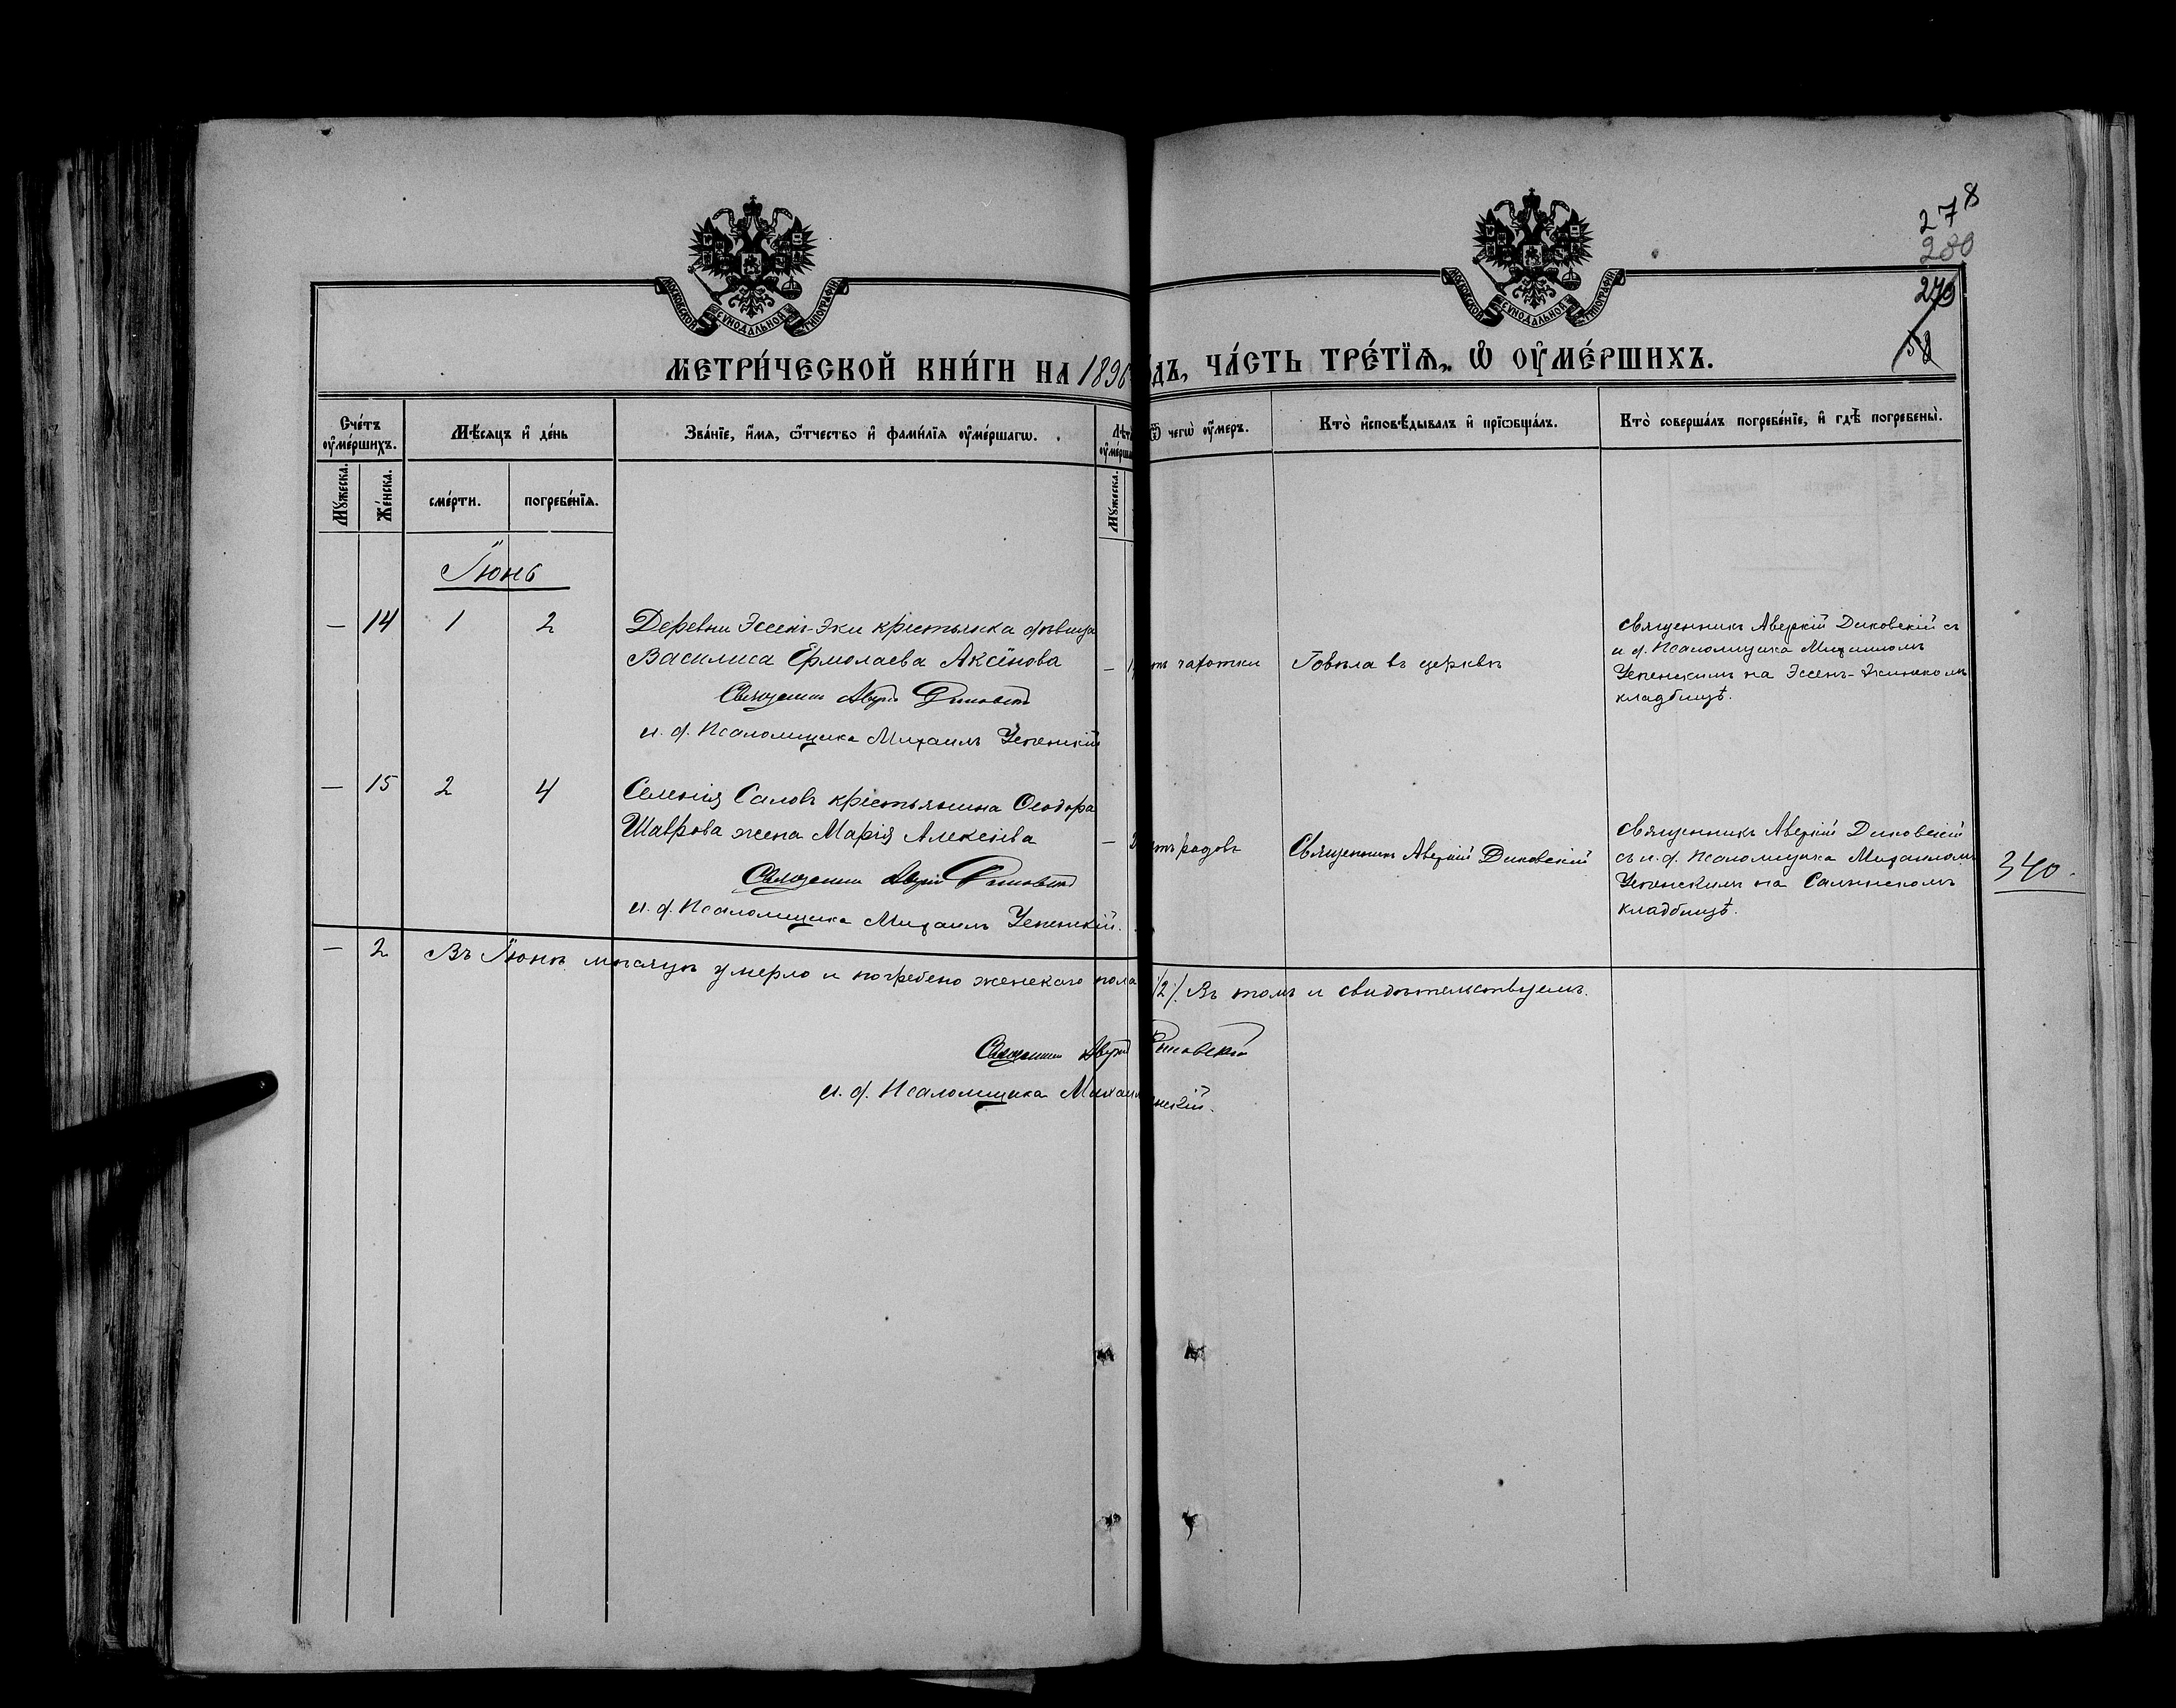 278
280
279
58
МОСКОВСКОЙ СѴНОДАЛЬНОЙ ТИПОГРАФІИ
МОСКОВСКОЙ СѴНОДАЛЬНОЙ ТИПОГРАФІИ
МЕТРИ́ЧЕСКОЙ КНИ́ГИ НА 1896
ДЪ, ЧА́СТЬ ТРЕ́ТІѦ, Ѡ ОУ҆МЕ́РШИХЪ.
Сче́тъ оу҆ме́ршихъ.
Мѣ́сѧцъ и҆ де́нь
Зва́нїе, и҆́мѧ, ѻ҆́тчество и҆ фами́лїѧ оу҆ме́ршагѡ.
Лѣт
оу҆ме́рша
Ѿ чегѡ̀ оу҆́меръ.
Кто̀ и҆сповѣ́дывалъ и҆ прїѡбща́лъ.
Кто̀ соверша́лъ погребе́нїе, и҆ гдѣ̀ погребены̀.
Мꙋ́жеска.
Же́нска.
сме́рти.
погребе́нїѧ.
Мꙋ́жеска.
Іюнь
— 14 1 2
Деревни Эссенъ-Эки крестьянка дѣвица
Василиса Ермолаева Аксёнова
Священникъ Аверкій Диковскій
и. д. Псаломщика Михаилъ Успенскій
—
отъ чахотки
Говѣла въ церкви
Священникъ Аверкій Диковскій съ
и. д. Псаломщика Михаиломъ
Успенскимъ на Эссенъ-Экинскомъ
кладбищѣ.
— 15 2 4
Селенія Салов крестьянина Ѳеодора
Шаврова жена Марія Алексѣева
Священникъ Аверкій Диковскій
и. д. Псаломщика Михаилъ Успенскій.
—
отъ родовъ
Священникъ Аверкій Диковскій
Священникъ Аверкій Диковскій
съ и. д. Псаломщика Михаиломъ
Успенскимъ на Салынскомъ
кладбищѣ.
340.
— 2 Въ Іюнѣ мѣсяцѣ умерло и погребено женскаго пола /2/. Въ томъ и свидѣтельствуемъ.
Священникъ Аверкій Диковскій
и. д. Псаломщика Михаил нскій.